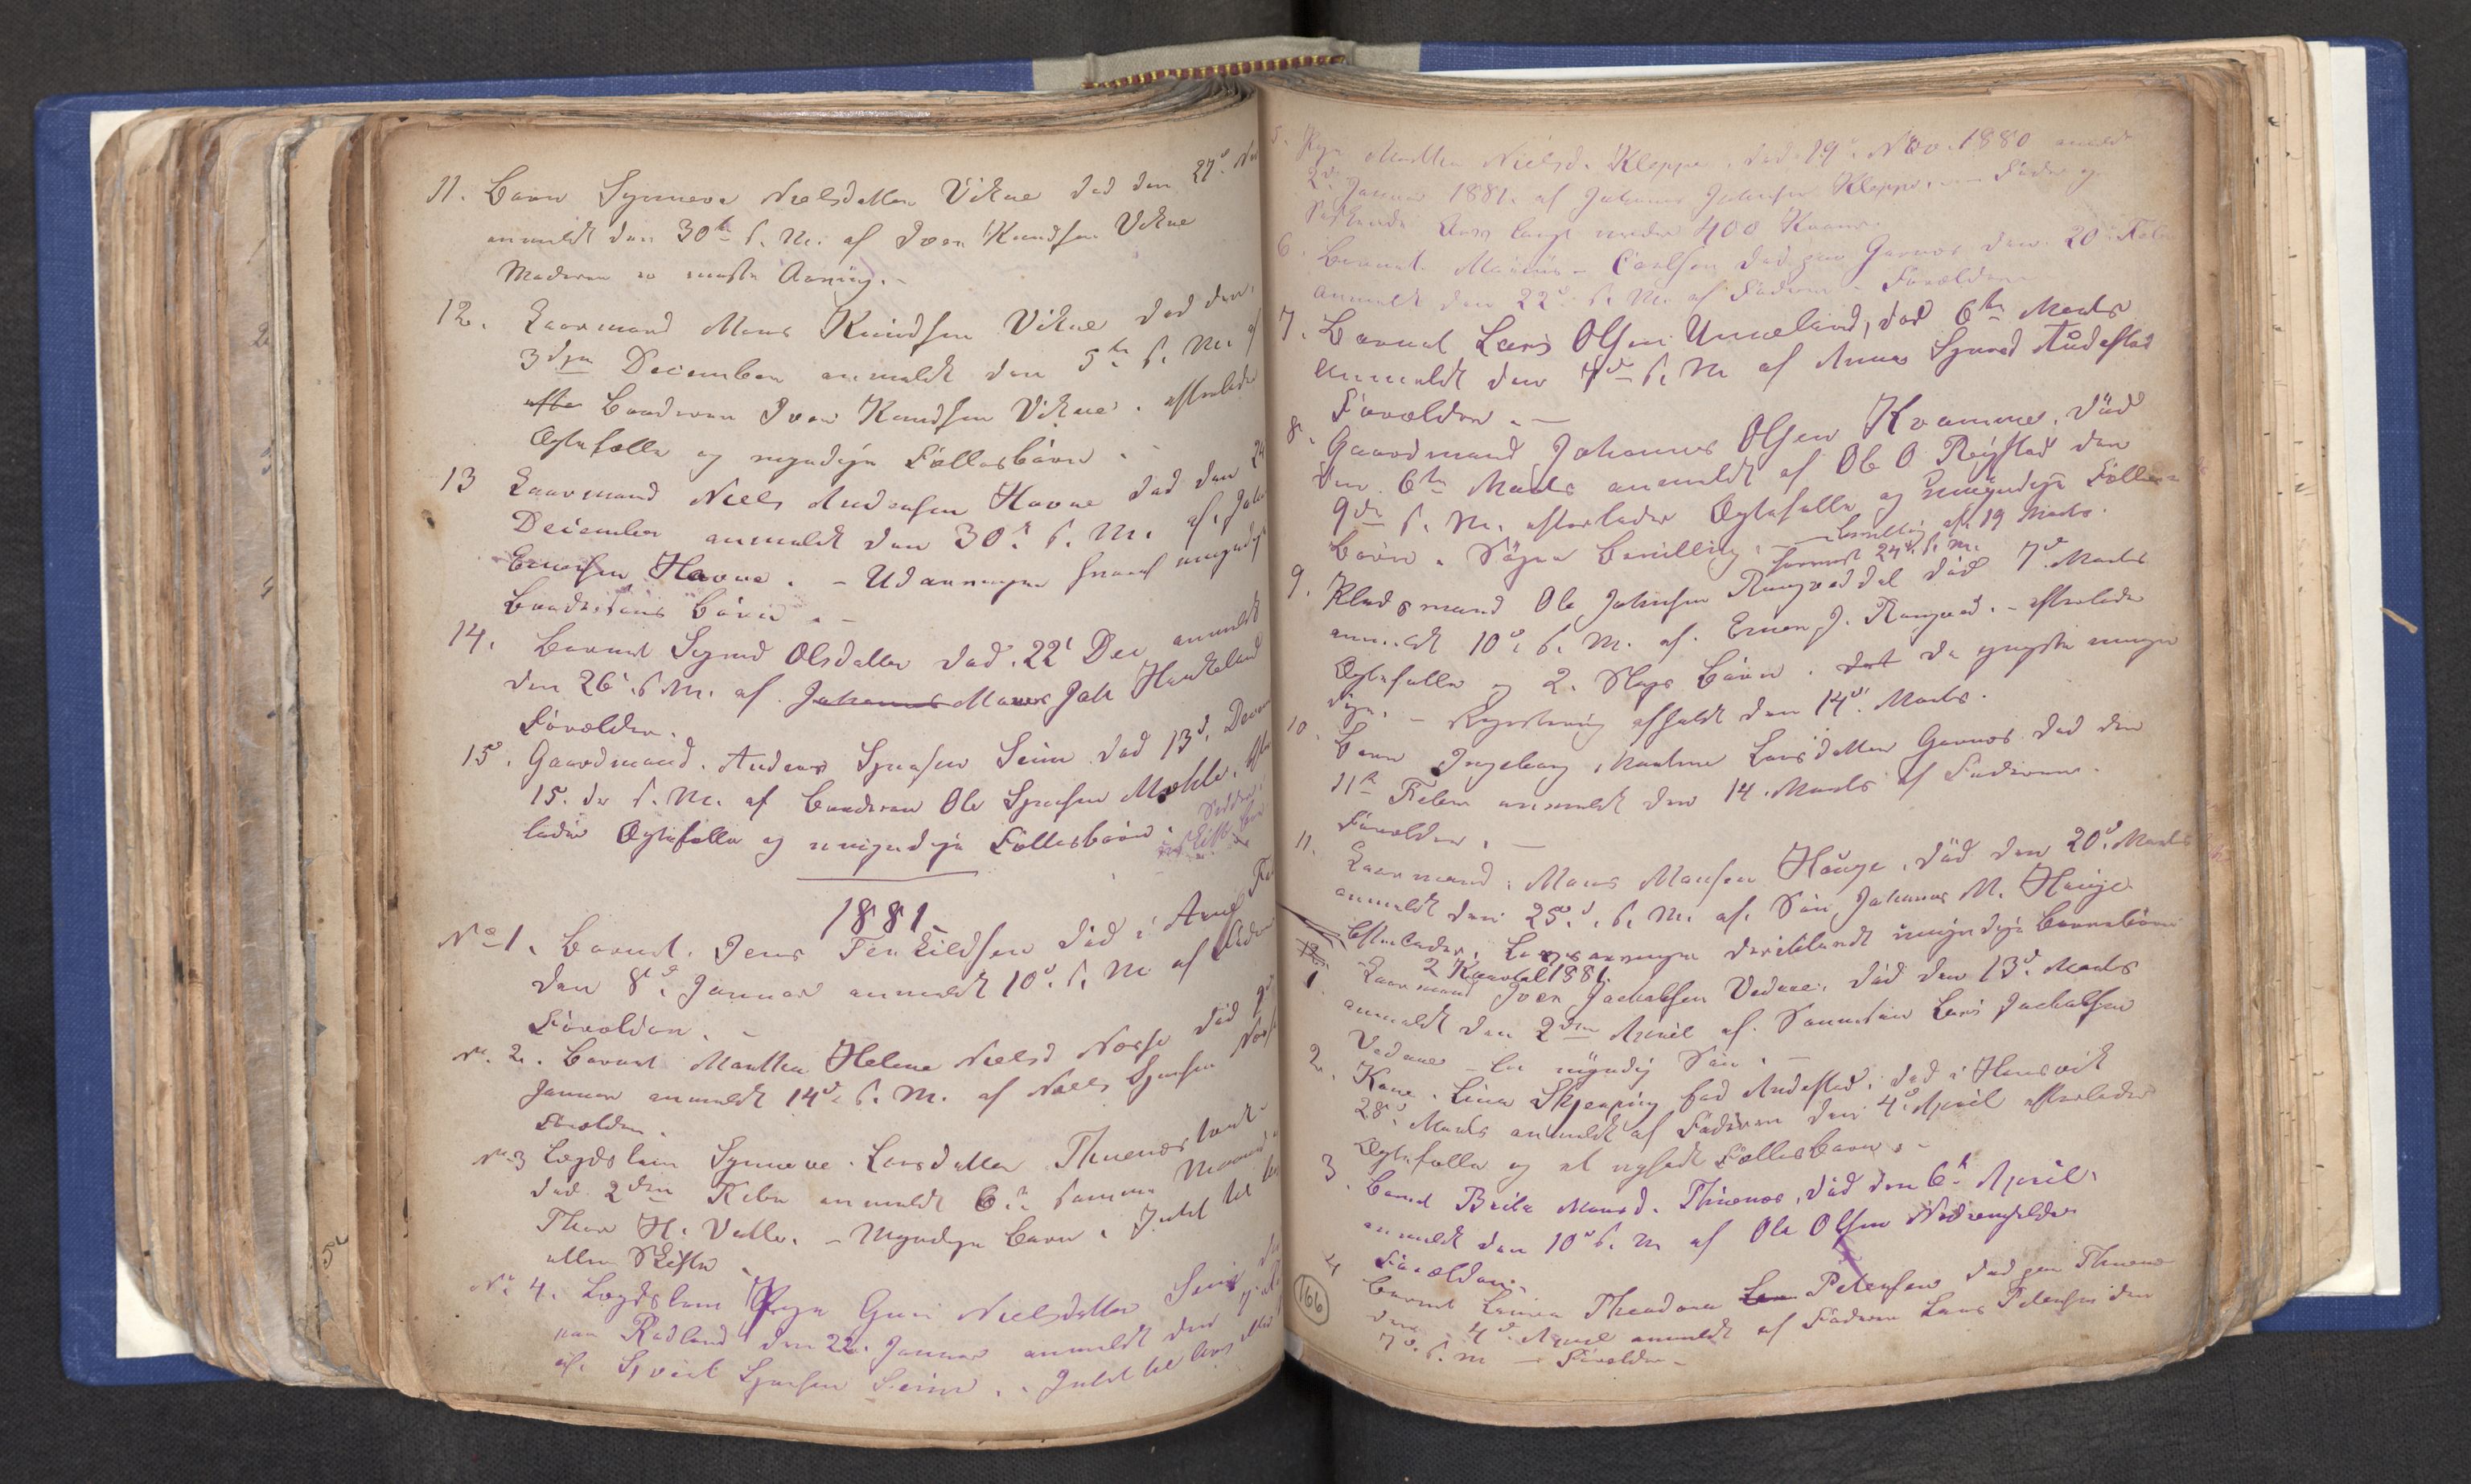 11. Barn Synneva Nielsdatter Vikne død den 27d Nov
anmeldt den 30te s. M. af Iver Knudsen Vikne
Moderen er eneste Arving. -
12. Kaarmand Mons Knudsen Vikne død den
3dje December anmeldt den 5te s. M. af
efter Broderen Iver Knudsen Vikne. efterlader
Ægtefælle og myndige Fællesbørn.
13 Kaarmand Niels Andersen Hovne død den 24
December anmeldt den 30. s. M. af
Hovne. - Udarvinger myndige
Børn. -
14. Barnet Sigrid Olsdatter død 22' Dec anmeldt
den 26. s. M. af Johannes Mons Joh Haukeland
Forældre.
15. Gaardmand. Anders Sjursen Seim død 13d. Decem
15. de s. M. af Broderen Ole Sjursen Mæhle. Efter
lader Ægtefælle og umyndige Fællesbørn.
1881.
No 1. Barnet. Jens Terkildsen død i
den 8d. Januar anmeldt 10d. s. M af
Forældre. -
No. 2. Barnet Martha Helene Nielsd Norse død
Januar anmeldt 14d. s. M. af Niels Sjursen
Forældre.
No 3 Lægdslem Synneve. Larsdatter Thuenæs
død. 2den Febr anmeldt 6te samme Maaned
Thor H. Valle. - Myndige Barn. Intet til
eller Skifte
No 4. Lægdslem Pige Guri Nielsdatter Seim
paa Rødland den 22. Januar anmeldt den
af. Sjurt Sjursen Seim. . Intet til Arv
5. Pige Martha Nielsd. Kleppe. død 19d. Nov. 1880 anmeldt
2den Januar 1881. af Johannes Johnsen Kleppe. Fader og
Søskende langt under 400 Kroner.
6. Barnet Carlsen død paa Garnæs den 20de Febr
Anmeldt den 22d s. M. af Faderen - Forældre
7. Barnet Lars Olsen Unneland, død 6te Marts
Anmeldt den 7de s. M af Anders Sjursd Audestad
Forældre. -
8. Gaardmand Johannes Olsen Kvamme. død
den 6te Marts anmeldt af Ole O Røystad den
9de s. M. efterlader Ægtefælle og umyndige Fælles
børn. Søger Bevilling. - Bevillig. af 19 Marts.
24d. s. M.
9. Pladsmand Ole Johnsen død 7d Marts
anmeldt 10d. s. M. af. - efterlader
Ægtefælle og 2. Slags Børn. det de yngste umyn
dige. - Registrering afholdt den 14d. Marts.
10. Barn Ingeborg Larsdatter Garnæs død den
11te Febr anmeldt den 14. Marts af Faderen.
Forældre. -
11. Kaarmand. Mons Monsen Hauge, død den 20d. Marts
anmeldt den 25d. s. M. af. Søn Johannes M. Hauge
Efterlader. Livsarvinger deriblandt umyndige Barnebørn
2 Kvartal 1881.
1. Kaarmand Iver Jacobsen Vedaae. død den 13d. Marts
anmeldt den 2den April af. Sønnesøn Lars Jacobsen
Vedaae - En myndig Søn. -
2. Kone. Lina Skjerping fød Audestad. død i Hausvik
28d. Marts anmeldt af Faderen den 4d April efterlader
Ægtefælle og et nyfødt Fællesbarn. -
3. Barnet Brita Monsd. Thuenæs, død den 6te April,
anmeldt den 10d s. M af Ole Olsen
Forældre. -
4 Barnet Laura Theodora Petersen død paa Thuenæs
den 4de April anmeldt af Faderen Lars Petersen den
7d. s. M - Forældre -
166